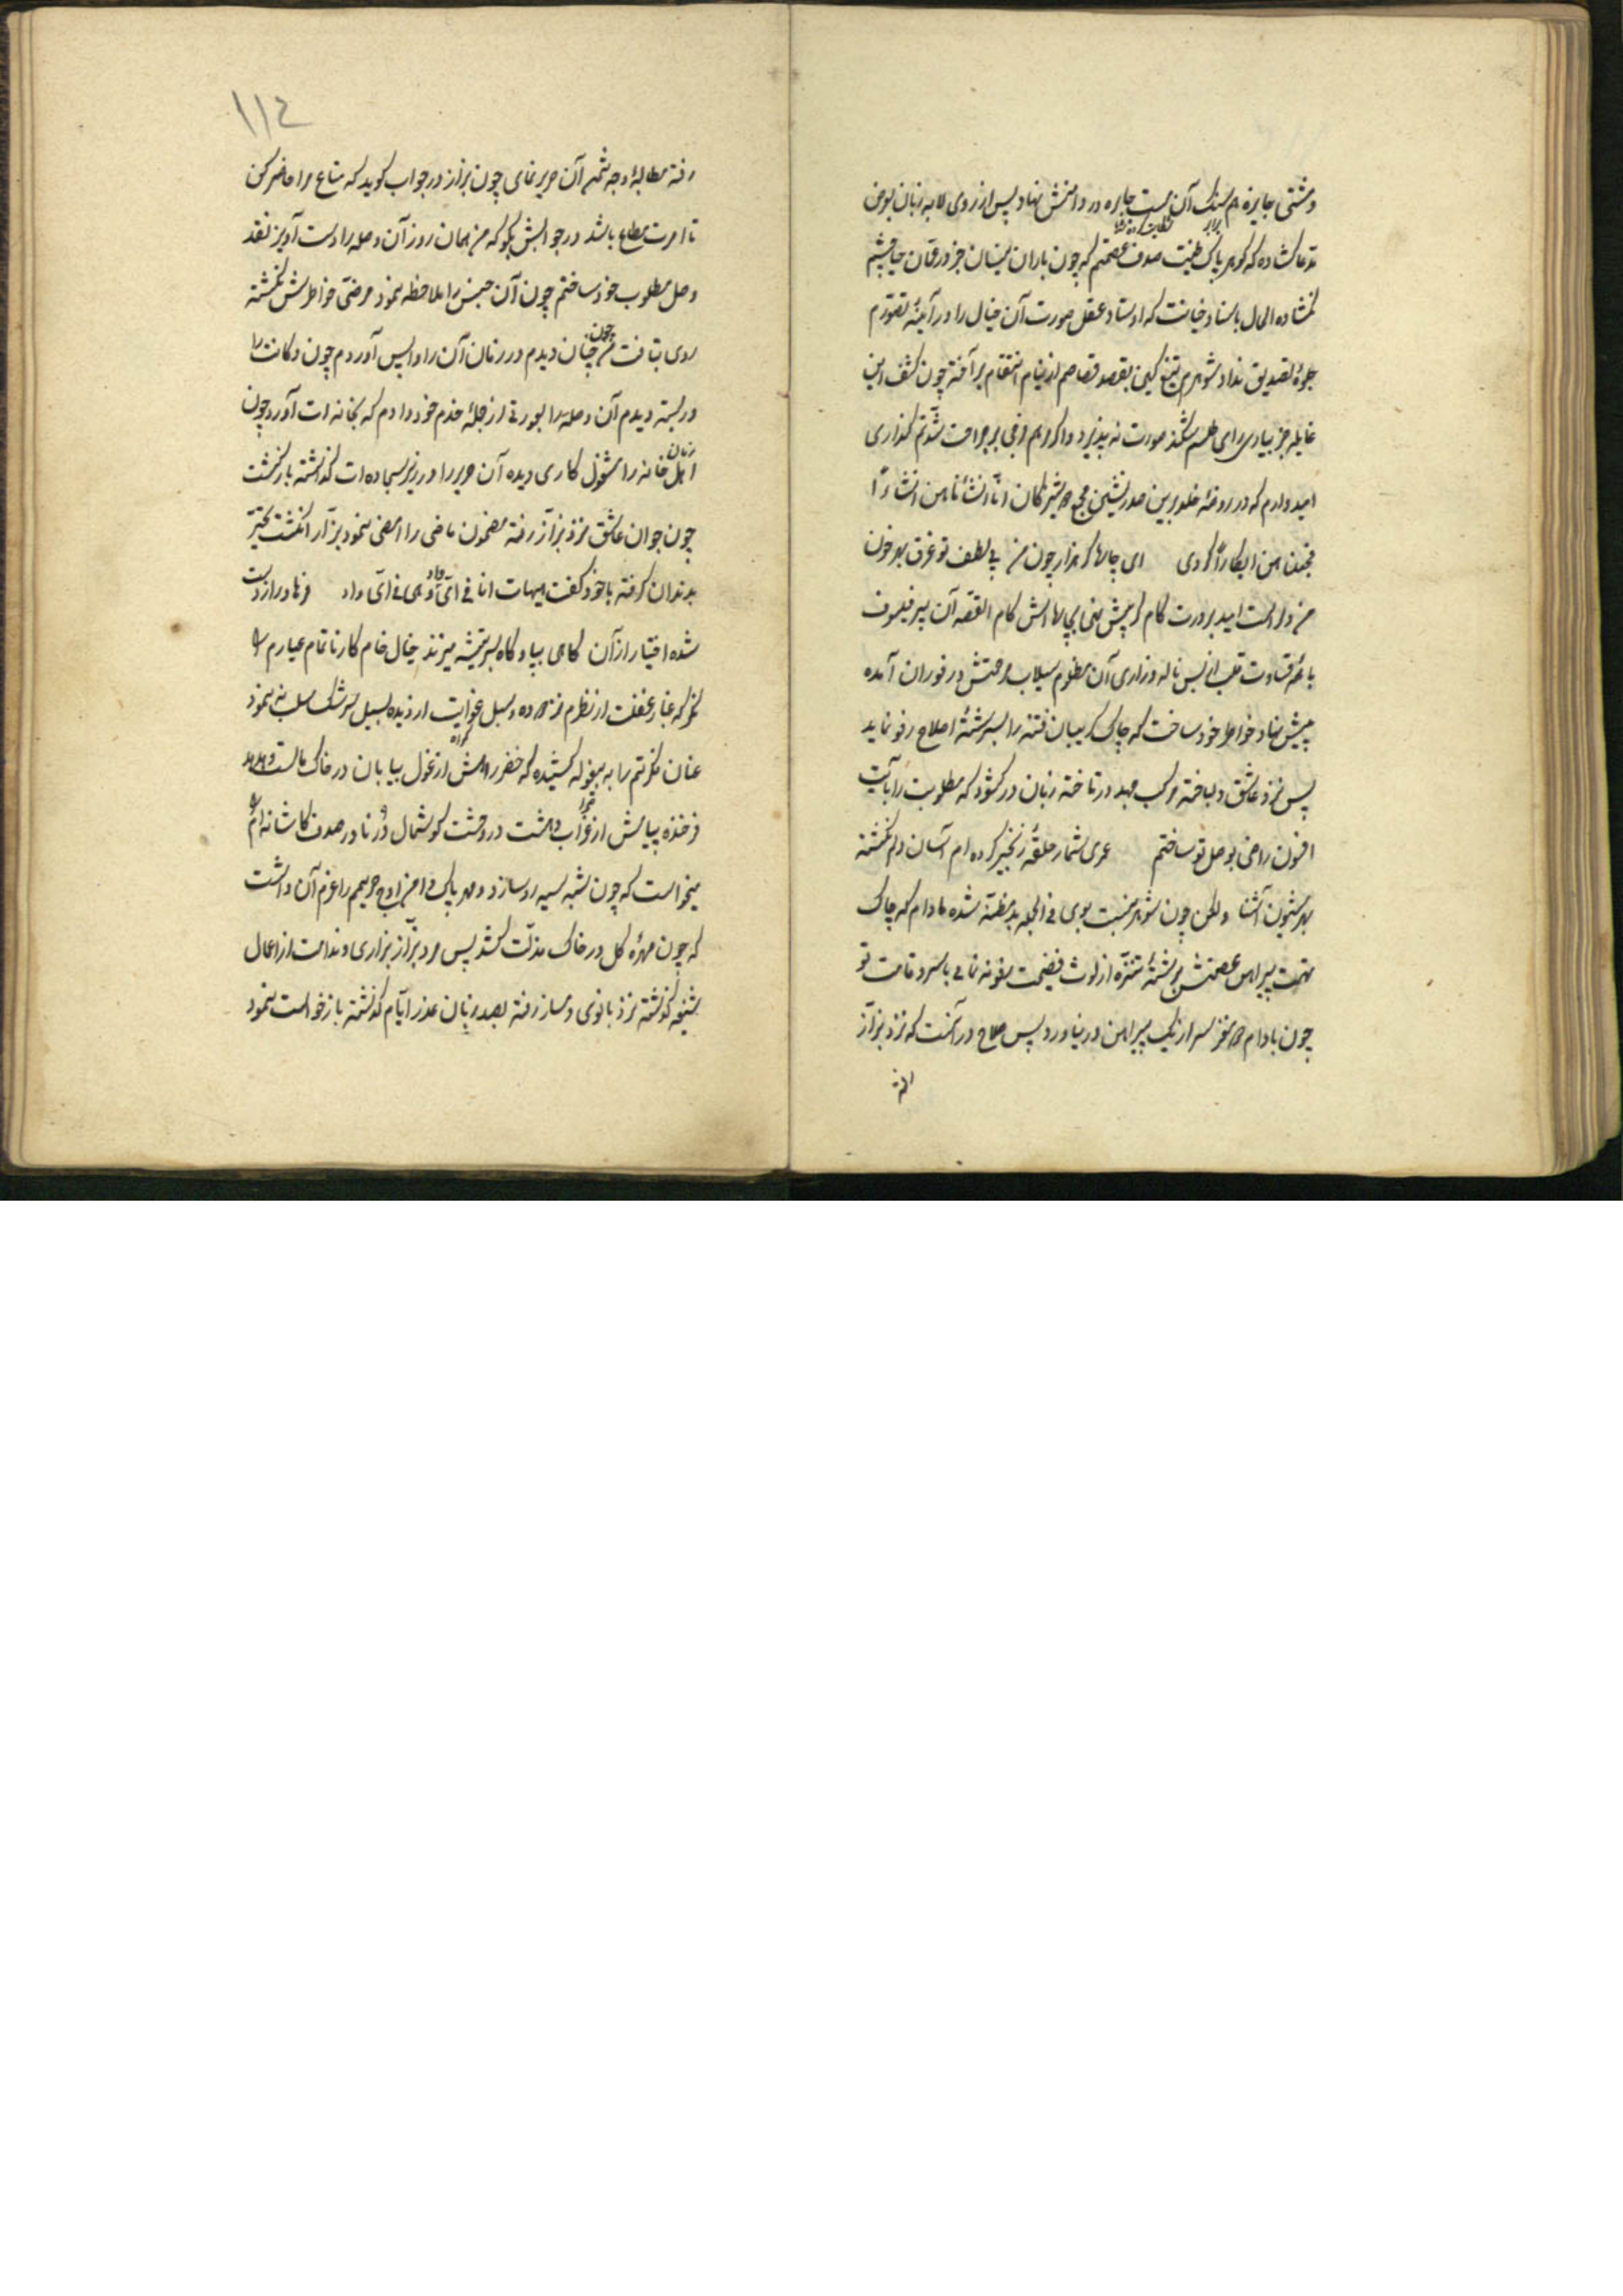 و مشتی جایزه هم سنک آن دست جایره در دامنش نهاد پس از روی لابه زبان بعرض
برابر
مدعا کشاده که کوهر پاک طینت صدف عصمتم که چون باران نیسان جز در قعان حیا چشم
نکشاده الحال باسناد خیانت که اوستاد عقل صورت آن خیال را در آینهٔ تصورم
جلوهٔ تصدیق نداد شوهرم تیغ کین بقصد قصاصم از نیام انتقام بر آخته چون کشف این
غایله جز بیاوری رای طلسم شکنت صورت نه پذیرد واکر مرهم فرجی بر جراحت شدتم کذاری
امیدوارم که در روضهٔ خلد برین صدر نشین مجمع حور شیرنکان انّا انشأناهن انشاءً
فجعلناهن ابکاراً کردی ای چاره کر هزار چون من پی لطف تو غرق بحر خون
من در است امید برورت کام کر پیش نهی بچاره اش کام القصه آن پیر فیلسوف
با همه قساوت قلب از بس ناله و زاری آن مظلوم سیلاب رحمتش در فوران آمده
پیش نهاد خواطر خود ساخت که چاک کریبان فتنه را بسر رشتهٔ اصلاح رفو نماید
پس نزد عاشق دلباخته مرکب جهد در تاخته زبان در کشود که مطلوبت را بآیت
افسون راضی بوصل تو ساختم عمری شمار حلقهٔ زنجیر کرده ام آسان دلم نکشته
بهر شیون آشنا ولکن چون شوهر نسبت بوی فی الجمله بد مظنّه شده مادام که چاک
تهمت پیراهن عصمتش برشتهٔ تنزّه از لوث فضیحت رفو نه نمایی باسرو قامت تو
چون بادام دو مغز سر از یک پیراهن در نیاورد پس صلاح در آنست که نزد بزّاز
رفته
١١٤
رفته مطالبهٔ وجه تتمه آن حریر نمای چون بزاز در جواب کوید که متاع مرا حاضر کن
تا امرت مطاع باشد در جوابش بکو که من همان روز آن وصله را دست آویز نقد
وصل مطلوب خود ساختم چون آن جنس را ملاحظه نمود مرضیّ خواطرش نکشته
روی بتافت من چون چنان دیدم در زمان آن را واپس آوردم چون دکانت را
در بسته دیدم آن وصله را بعورتی از جملهٔ خدم خود دادم که بخانه ات آورد چون
اهل خانه را مشغول کاری دیده آن حریر را در زیر سجاده ات کذاشته بازکشت
زمان
چون جوان عاشق نزد بزّاز رفته مضمون ماضی را امضی نمود بزّاز انکشت تحیّر
بدندان کرفته باخود کفت هیهات انا فی ایّ واد و هی فی ایّ واد فرهاد را ز دست
شده اختیار از آن کاهی بپا و کاه بسر تیشه میزند خیال خام کار ناتمام عیارم را
نکر که غبار غفلت از نظرم نزدوده و سبل غوایت از دیده بسبیل سرشک سلب نه نمود
عنان مکرتم را به بیغوله کشیده که خضر راهش از غول بیابان در خاک مالست و هدهد
فرخنده پیامش از غراب دهشت در وحشت کوشمال دُرّ نا در صدف کاشانه ام را
میخواست که چون شبه سیه رو سازد و مهر پاک دامنی اوج حریمم را عزم آن داشت
که چون مهرهٔ کل در خاک مذلّت کشد پس مرد بزّاز بزاری و ندامت از اعمال
شنیعه کذشته نزد بانوی دمساز رفته بصد زبان عذر ایّام کذشته باز خواست نمود